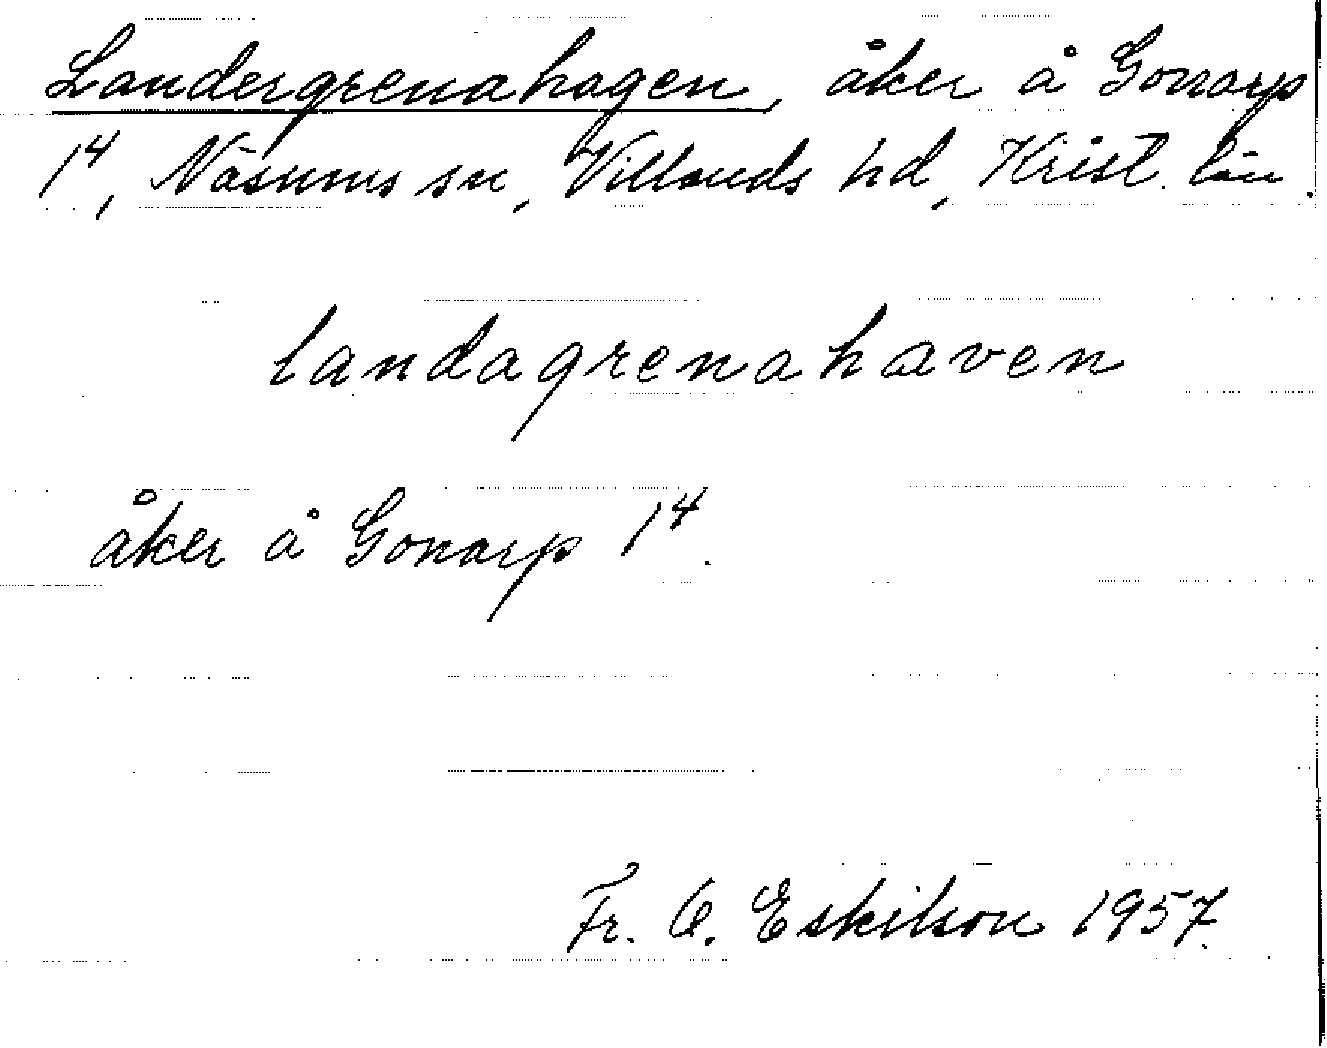 Landergrenahagen, åker å Gonarp
1⁴, Näsums sn, Villands hd, Krist. län.
landagrenahaven
åker å Gonarp 1⁴.
Fr. O. Eskilson 1957.